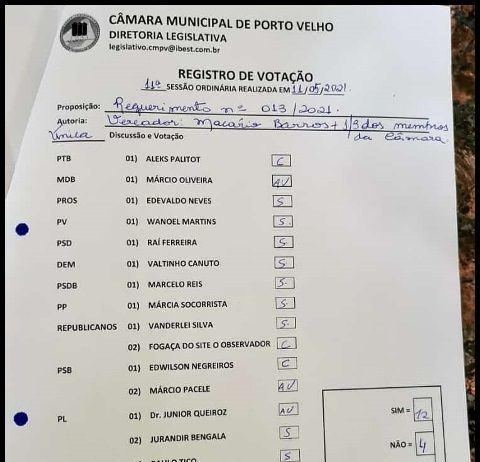 CÂMARA MUNICIPAL DE PORTO VELHO
DIRETORIA LEGISLATIVA
legislativo.cmpv@ibest.com.br
REGISTRO DE VOTAÇÃO
11ª SESSÃO ORDINÁRIA REALIZADA EM 11/05/2021.
Proposição: Requerimento nº 013/2021.
Autoria: Vereador: Macário Barros + 1/3 dos membros
da Câmara.
Única Discussão e Votação
PTB 01) ALEKS PALITOT C
MDB 01) MÁRCIO OLIVEIRA AU
PROS 01) EDEVALDO NEVES S
PV 01) WANOEL MARTINS S.
PSD 01) RAÍ FERREIRA S.
DEM 01) VALTINHO CANUTO S.
PSDB 01) MARCELO REIS S.
PP 01) MÁRCIA SOCORRISTA S.
REPUBLICANOS 01) VANDERLEI SILVA S.
02) FOGAÇA DO SITE O OBSERVADOR C
PSB 01) EDWILSON NEGREIROS C
02) MÁRCIO PACELE AU
PL 01) Dr. JUNIOR QUEIROZ AU
02) JURANDIR BENGALA S
PAULO TICO S
SIM = 12
NÃO = 4